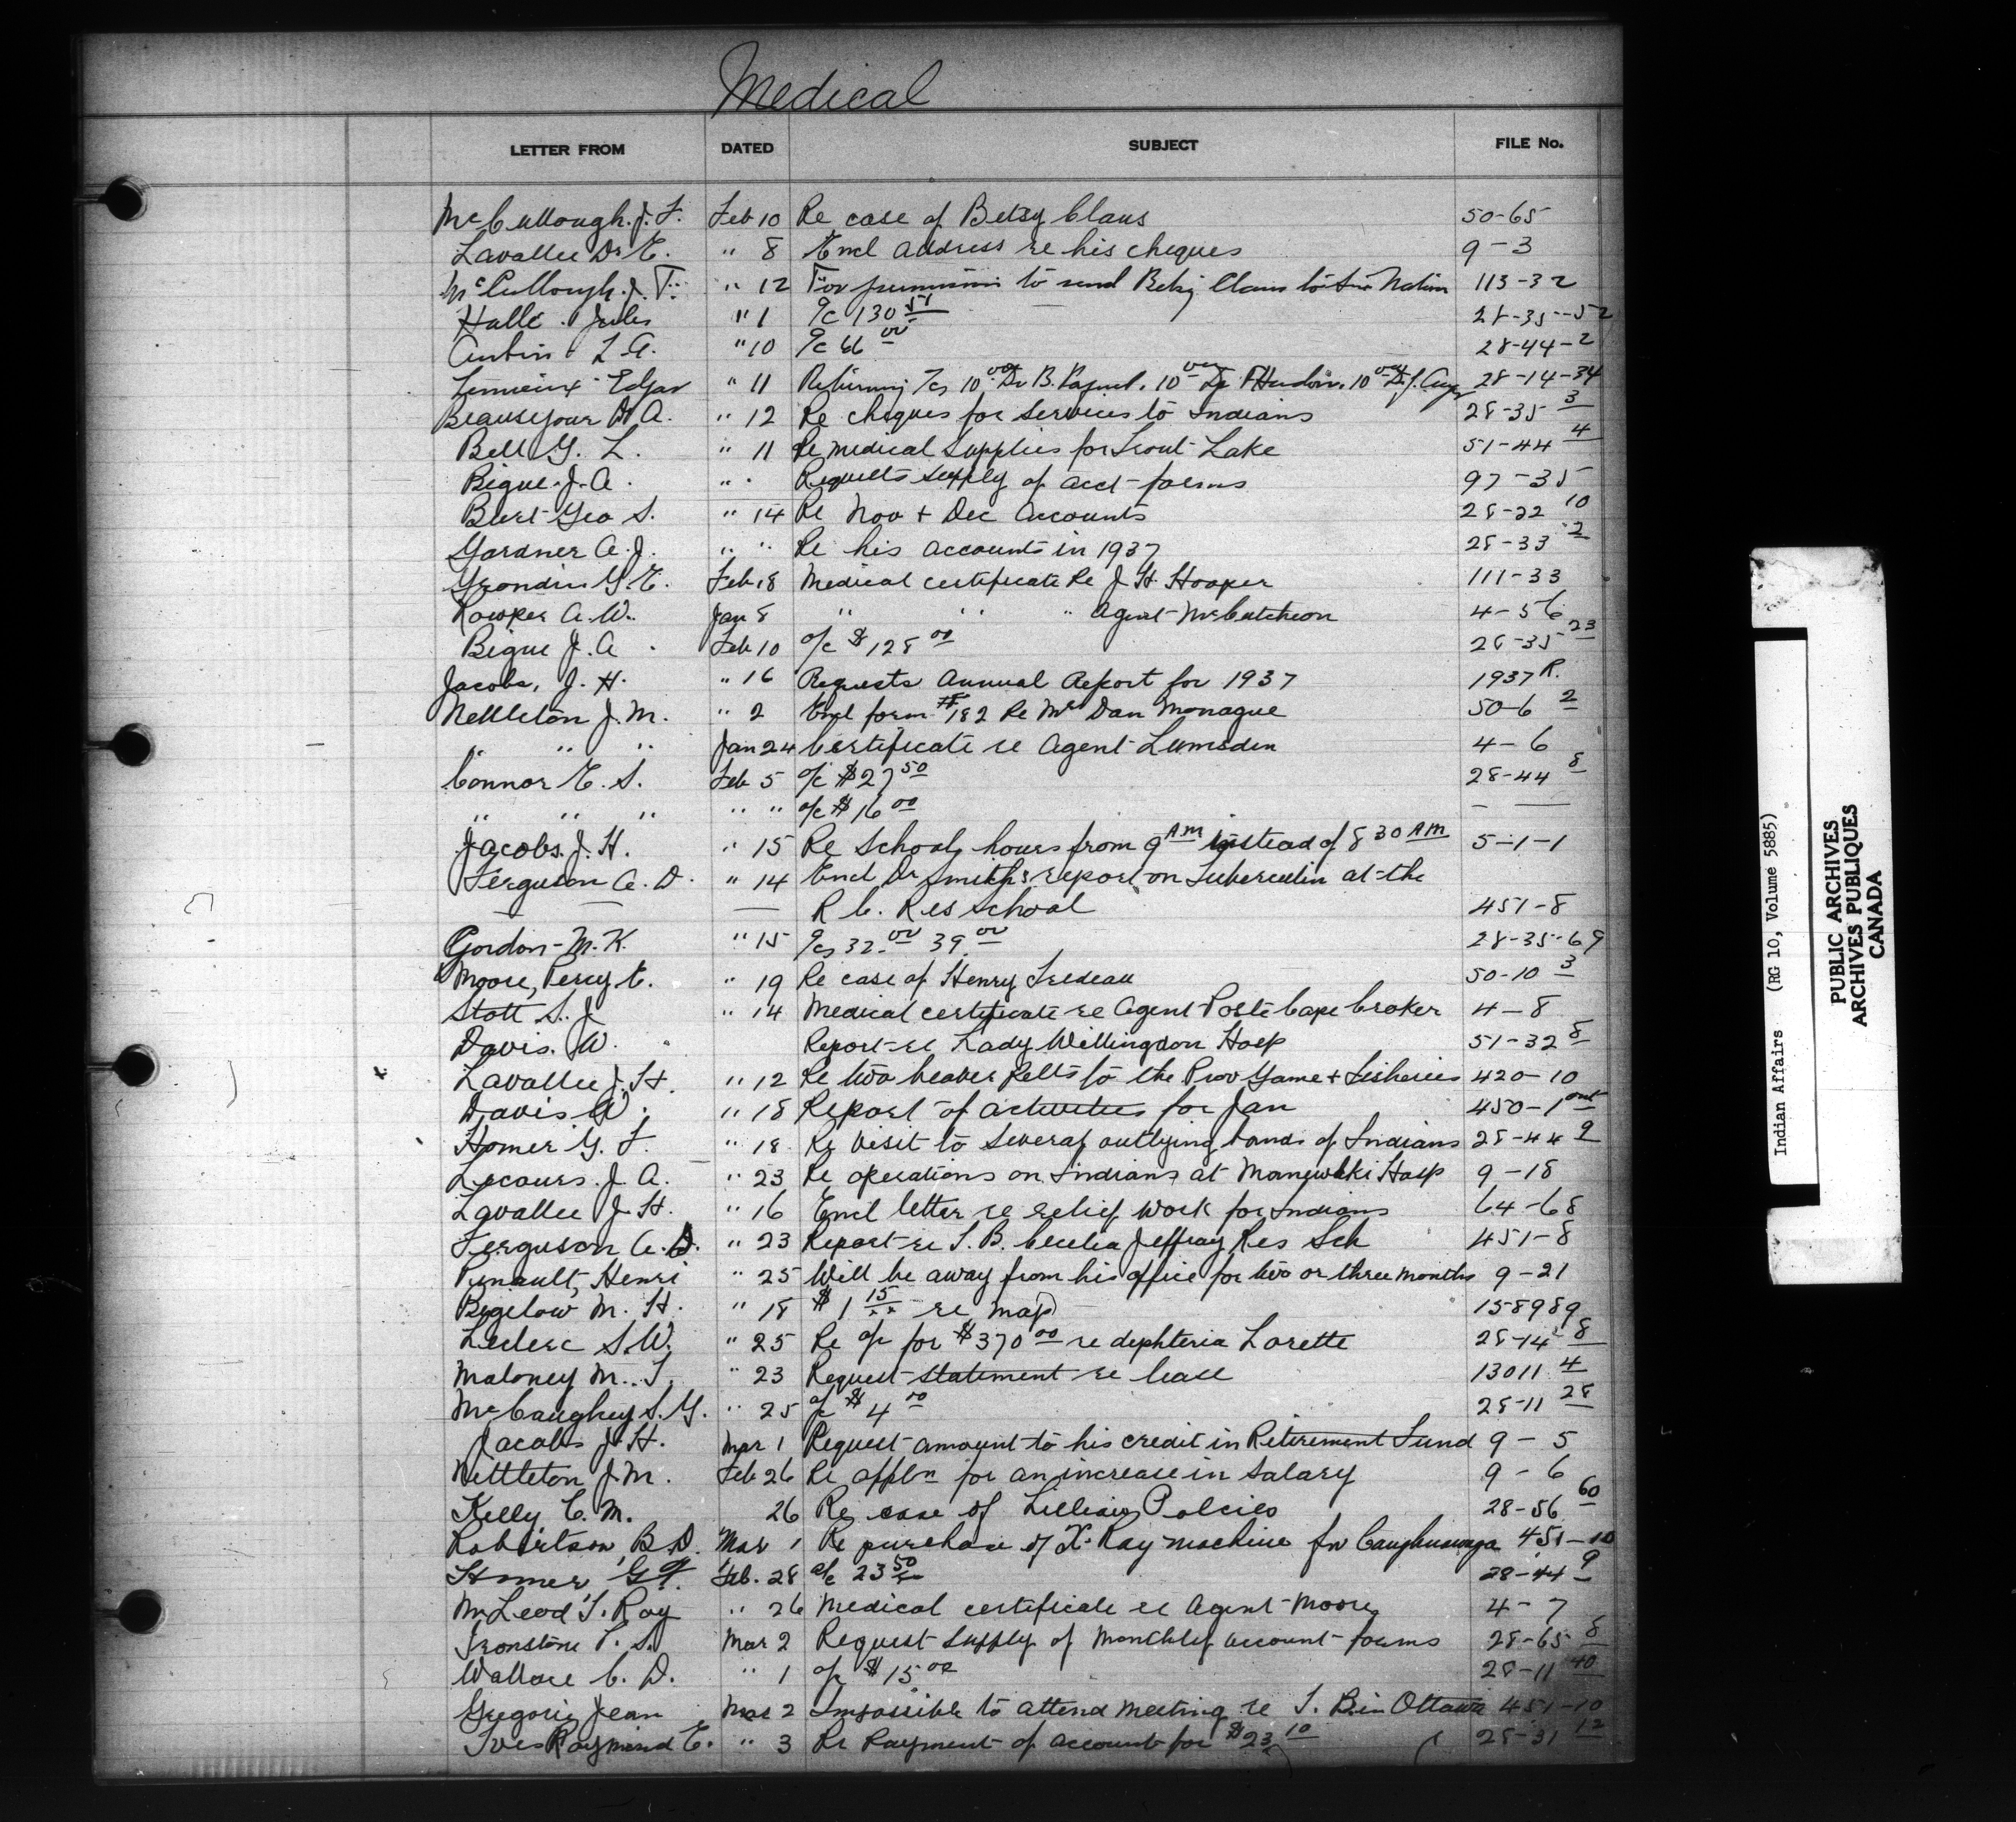 Medical
LETTER FROM DATED SUBJECT FILE No.
McCullough. J. F. Feb 10 Re case of Betsy Claus 50-65
Lavallee Dr E. " 8 Encl address re his cheques 9-3
McCullough. J. F. " 12 For permission to send Betsy Claus to Six Nation 113-32
Halle. Jules " 1 a/c 130 51 28-35-52
Aubin L A. " 10 a/c 66 00 28-44-2
Lemieux Edgar " 11 Returning a/cs 10 00 Dr B. Paquet. 10 00 Dr F Hudon. 10 00 Dr J. 28-14-34
Beausejour Dr A. " 12 Re cheques for services to Indians 28-35 3
Bell G. L. " 11 Re medical supplies for Trout Lake 51-44 4
Bigue. J. A. " " Requests supply of acct forms 97-35
Burt Geo S. " 14 Re Nov + Dec Accounts 28-22 10
Gardner A. J. " " Re his accounts in 1937 28-33 2
Grondin G. E. Feb 18 Medical certificate Re J. H. Hooper 111-33
Rowker A. W. Jan 8 " " " Agent McCutcheon 4-56
Bigue J. A. Feb 10 a/c $128 00 28-35 23
Jacobs, J. H. " 16 Requests Annual Report for 1937 1937 R.
Nettleton J. M. " 2 Encl form #182 Re Mr Dan Monague 50-6 2
" " " Jan 24 Certificate re Agent Lumsden 4-6
Connor E. S. Feb 5 a/c $27 50 28-44 8
" " " " " a/c $16 00 - —
Jacobs. J. H. " 15 Re School hours from 9 AM instead of 8 30 AM 5-1-1
Ferguson A. D. " 14 Encl Dr Smith's report on Tuberculin at the
— — — R C. Res School 451-8
Gordon M. K. " 15 a/cs 32. 00 39. 00 28-35-69
Moore, Percy E. " 19 Re case of Henry Tredeau 50-10 3
Stott S. J. " 14 Medical certificate re Agent Poste Cape Croker 4-8
Davis. W. Report re Lady Willingdon Hosp 51-32 8
Lavallee J. H. " 12 Re two beaver pelts to the Prov Game + Fisheries 420-10
Davis W. " 18 Report of activities for Jan 450-1 ont
Homer G. F. " 18 Re visit to several outlying bands of Indians 28-44 9
Lecours. J. A. " 23 Re operations on Indians at Maniwaki Hosp 9-18
Lavallee J. H. " 16 Encl letter re relief work for Indians 64-68
Ferguson A. D. " 23 Report re T. B. Cecelia Jeffray Res Sch 451-8
Pinault, Henri " 25 Will be away from his office for two or three months 9-21
Bigelow M. H. " 18 $1 15 re map 158989
Leclerc S. W. " 25 Re a/c for $370 00 re diphteria Lorette 28-14 8
Maloney M. T. " 23 Request statement re lease 13011 4
McCaughey S. G. " 25 a/c $4 00 28-11 28
Jacobs J. H. Mar 1 Request amount to his credit in Retirement Fund 9-5
Nettleton J. M. Feb 26 Re appln for an increase in salary 9-6
Kelly C. M. 26 Re case of Lillian 28-56 60
Robertson, B. D. Mar 1 Re purchase of X-Ray machine for Caughnawaga 451-10
Homer, G F. Feb. 28 a/c 23 50 28-44 9
McLeod T. Ray " 26 Medical certificate re Agent Moore 4-7
Ironstone P. S. Mar 2 Request supply of monthly account forms 28-65 8
Wallace C. D. " 1 a/c $15 00 28-11 40
Gregoire Jean Mar 2 Impossible to attend meeting re T. B. in Ottawa 451-10
Ives Raymond E. " 3 Re Payment of account for $23 10 28-31 12
Indian Affairs (RG 10, Volume 5885)
PUBLIC ARCHIVES
ARCHIVES PUBLIQUES
CANADA